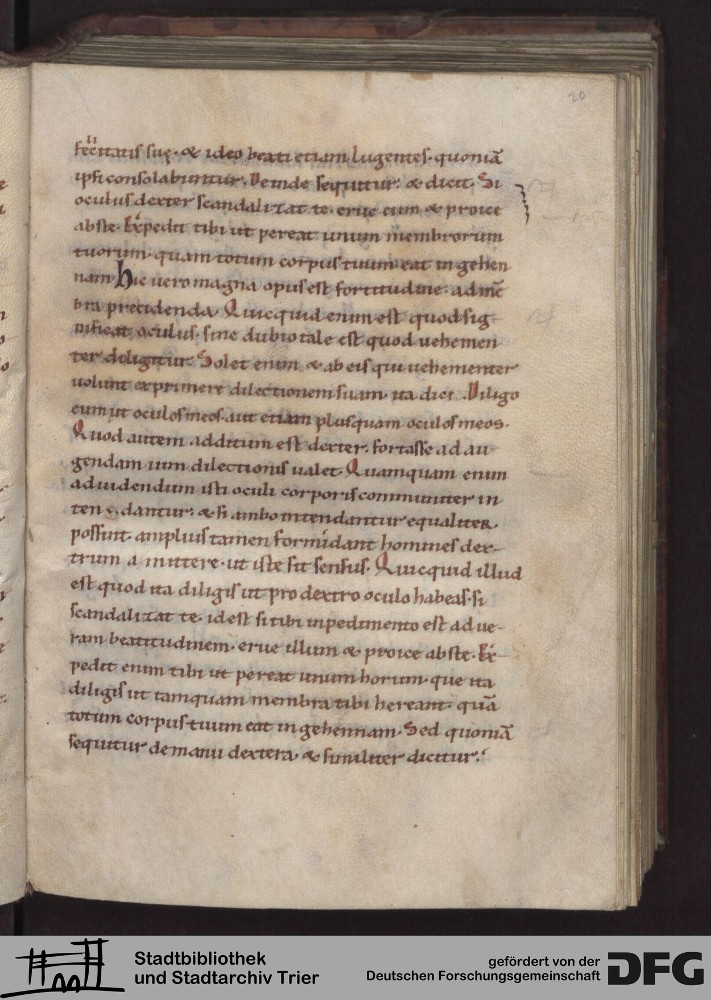 20
fecitatis suę· & ideo beati etiam lugentes· quoniā
ipsi consolabuntur. Deinde sequitur· & dicit· Si
oculus dexter scandalizat te· erue eum & proice
abste· Expedit tibi ut pereat unum membrorum
tuorum· quam totum corpus tuum eat in gehen
nam. hic uero magna opus est fortitudine· ad mē
bra precidenda. Quicquid enim est quod sig
nificat oculus· sine dubio tale est quod uehemen
ter diligitur· Solet enim & ab eis qui uehementer
uolunt exprimere dilectionem suam· ita dici. Diligo
eum ut oculos meos· aut etiam plusquam oculos meos·
Quod autem additum est dexter· fortasse ad au
gendam uim dilectionis ualet· Quamquam enim
ad uidendum isti oculi corporis communiter in
ten dantur· & si ambo intendantur equaliter
possint· amplius tamen formidant homines dex-
trum a mittere· ut iste sit sensus· Quicquid illud
est quod ita diligis ut pro dextro oculo habeas· si
scandalizat te· id est si tibi inpedimento est ad ue-
ram beatitudinem· erue illum & proice abste· Ex-
pedit enim tibi ut pereat unum horum· que ita
diligis ut tamquam membra tibi hereant· quā
totum corpus tuum eat in gehennam· Sed quoniā
sequitur de manu dextera· & similiter dicitur·
Stadtbibliothek
und Stadtarchiv Trier
gefördert von der
Deutschen Forschungsgemeinschaft
DFG